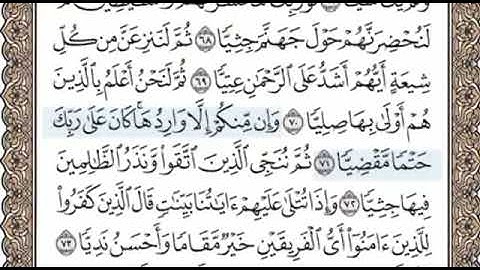 لَنُحْضِرَنَّهُمْ حَوْلَ جَهَنَّمَ جِثِيًّا ٦٨ ثُمَّ لَنَنزِعَنَّ مِن كُلِّ
شِيعَةٍ أَيُّهُمْ أَشَدُّ عَلَى ٱلرَّحْمَٰنِ عِتِيًّا ٦٩ ثُمَّ لَنَحْنُ أَعْلَمُ بِٱلَّذِينَ
هُمْ أَوْلَىٰ بِهَا صِلِيًّا ٧٠ وَإِن مِّنكُمْ إِلَّا وَارِدُهَا ۚ كَانَ عَلَىٰ رَبِّكَ
حَتْمًا مَّقْضِيًّا ٧١ ثُمَّ نُنَجِّى ٱلَّذِينَ ٱتَّقَوا۟ وَّنَذَرُ ٱلظَّٰلِمِينَ
فِيهَا جِثِيًّا ٧٢ وَإِذَا تُتْلَىٰ عَلَيْهِمْ ءَايَٰتُنَا بَيِّنَٰتٍ قَالَ ٱلَّذِينَ كَفَرُوا۟
لِلَّذِينَ ءَامَنُوٓا۟ أَىُّ ٱلْفَرِيقَيْنِ خَيْرٌ مَّقَامًا وَأَحْسَنُ نَدِيًّا ٧٣